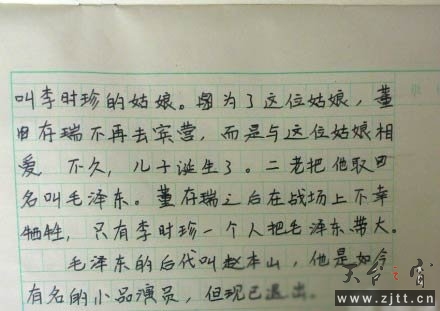 叫李时珍的姑娘。因为了这位姑娘，董
存瑞不再去宾营，而是与这位姑娘相
爱，不久，儿子诞生了。二老把他取
名叫毛泽东。董存瑞之后在战场上不幸
牺牲，只有李时珍一个人把毛泽东带大。
毛泽东的后代叫赵本山，他是如今
有名的小品演员，但现已退出。
天台之窗
www.zjtt.cn